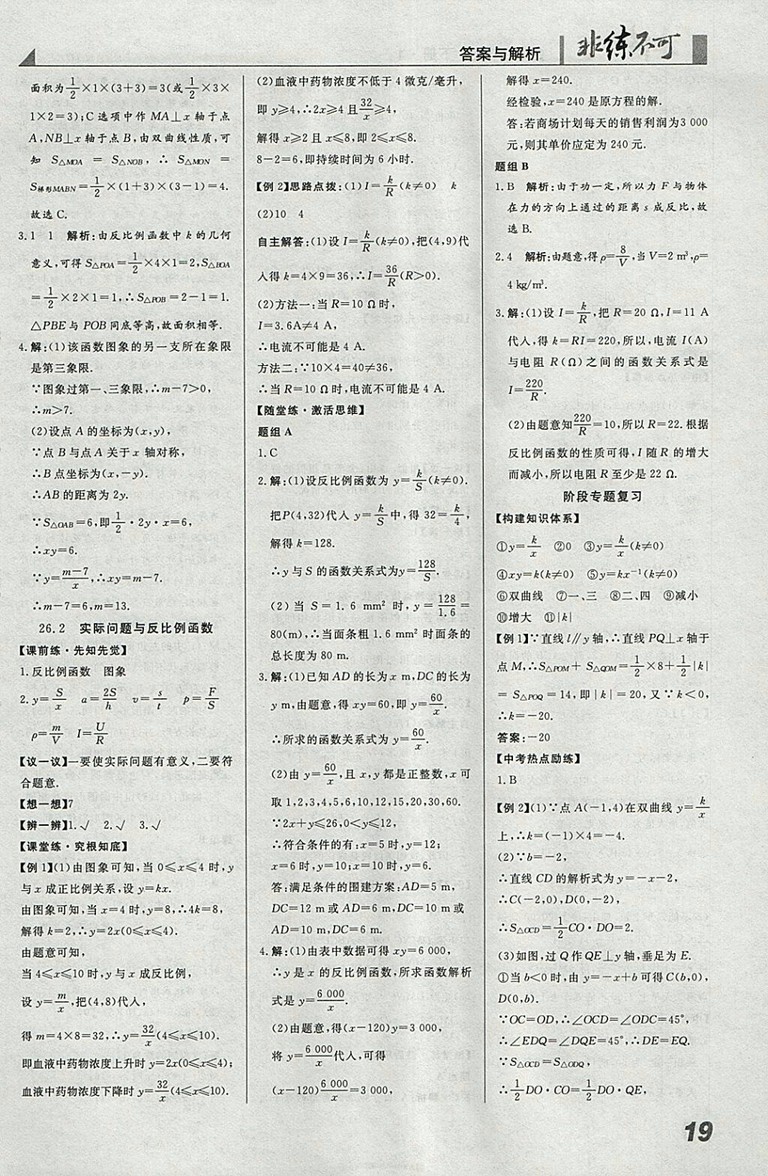 答案与解析
非练不可
面积为1/2×1×(3+3)=3(或1/2×3×
1×2=3);C选项中作MA⊥x轴于点
A,NB⊥x轴于点B,由双曲线性质,可
知 S△MOA = S△NOB, ∴ S△MON =
S梯形MABN=1/2×(1+3)×(3-1)=4.
故选C.
3.1 1 解析:由反比例函数中k的几何
意义,可得S△POA=1/2×4×1=2,S△BOA
=1/2×2×1=1,∴S△POB=2-1=1.
△PBE与POB同底等高,故面积相等.
4.解:(1)该函数图象的另一支所在象限
是第三象限.
∵图象过第一、三象限,∴m-7>0,
∴m>7.
(2)设点A的坐标为(x,y),
∵点B与点A关于x轴对称,
∴B点坐标为(x,-y).
∴AB的距离为2y.
∵S△OAB=6,即1/2·2y·x=6,
∴xy=6.
∵y=(m-7)/x,∴xy=m-7.
∴m-7=6,m=13.
26.2 实际问题与反比例函数
【课前练·先知先觉】
1.反比例函数 图象
2.y=S/x a=2S/h v=s/t p=F/S
ρ=m/V I=U/R
【议一议】一要使实际问题有意义,二要符
合题意.
【想一想】7
【辨一辨】1.√ 2.√ 3.√
【课堂练·究根知底】
【例1】(1)由图象可知,当0≤x≤4时,y
与x成正比例关系,设y=kx.
由图象可知,当x=4时,y=8,∴4k=8,
解得k=2,∴y=2x(0≤x≤4).
由题意可知,
当4≤x≤10时,y与x成反比例,
设y=m/x,把(4,8)代入,
得m=4×8=32,∴y=32/x(4≤x≤10).
即血液中药物浓度上升时y=2x(0≤x≤4);
血液中药物浓度下降时y=32/x(4≤x≤10).
(2)血液中药物浓度不低于4微克/毫升,
即y≥4,∴2x≥4且32/x≥4,
解得x≥2且x≤8,即2≤x≤8.
8-2=6,即持续时间为6小时.
【例2】思路点拨:(1)I=k/R(k≠0) k
(2)10 4
自主解答:(1)设I=k/R(k≠0),把(4,9)代
入得k=4×9=36,∴I=36/R(R>0).
(2)方法一:当R=10 Ω时,
I=3.6A≠4 A,
∴电流不可能是4 A.
方法二:∵10×4=40≠36,
∴当R=10 Ω时,电流不可能是4 A.
【随堂练·激活思维】
题组A
1.C
2.解:(1)设反比例函数为y=k/S(k≠0).
把P(4,32)代入y=k/S中,得32=k/4,
解得k=128.
∴y与S的函数关系式为y=128/S.
(2)当S=1.6 mm²时,y=128/1.6=
80(m),∴当面条粗1.6 mm²时面条的
总长度为80 m.
3.解:(1)已知AD的长为x m,DC的长为
y m,由题意,得xy=60,即y=60/x.
∴所求的函数关系式为y=60/x.
(2)由y=60/x,且x,y都是正整数,x可
取1,2,3,4,5,6,10,12,15,20,30,60.
∵2x+y≤26,0<y≤12,
∴符合条件的有:x=5时,y=12;
x=6时,y=10;x=10时,y=6.
答:满足条件的围建方案:AD=5 m,
DC=12 m或AD=6 m,DC=10 m或
AD=10 m,DC=6 m.
4.解:(1)由表中数据可得xy=6 000,
∴y是x的反比例函数,所求函数解析
式是y=6 000/x.
(2)由题意,得(x-120)y=3 000,
将y=6 000/x代入,可得
(x-120)6 000/x=3 000,
解得x=240.
经检验,x=240是原方程的解.
答:若商场计划每天的销售利润为3 000
元,则其单价应定为240元.
题组B
1.B 解析:由于功一定,所以力F与物体
在力的方向上通过的距离s成反比,故
选B.
2.4 解析:由题意,得ρ=8/V,当V=2 m³,ρ=
4 kg/m³.
3.解:(1)设I=k/R,把R=20 Ω,I=11 A
代入,得k=RI=220,所以,电流I(A)
与电阻R(Ω)之间的函数关系式是
I=220/R.
(2)由题意知220/R=10,所以R=22.根据
反比例函数的性质可得,I随R的增大
而减小,所以电阻R至少是22 Ω.
阶段专题复习
【构建知识体系】
①y=k/x ②0 ③y=k/x(k≠0)
④xy=k(k≠0) ⑤y=kx⁻¹(k≠0)
⑥双曲线 ⑦一、三 ⑧二、四 ⑨减小
⑩增大 ⑪|k|
【例1】∵直线l∥y轴,∴直线PQ⊥x轴于
点M,∴S△POM+S△QOM=1/2×8+1/2|k|
=S△POQ=14,即|k|=20,又∵k<0,
∴k=-20.
答案:-20
【中考热点励练】
1.B
【例2】(1)∵点A(-1,4)在双曲线y=k/x
上,∴k=(-1)×4=-4.
(2)∵b=-2,
∴直线CD的解析式为y=-x-2,
∴C(-2,0),D(0,-2),
∴S△OCD=1/2CO·DO=2.
(3)如图,过Q作QE⊥y轴,垂足为E.
①当b<0时,由y=-x+b可得C(b,0),
D(0,b).
∵OC=OD,∴∠OCD=∠ODC=45°,
∴∠EDQ=∠DQE=45°,∴DE=QE.
∵S△OCD=S△ODQ,
∴1/2DO·CO=1/2DO·QE,
19